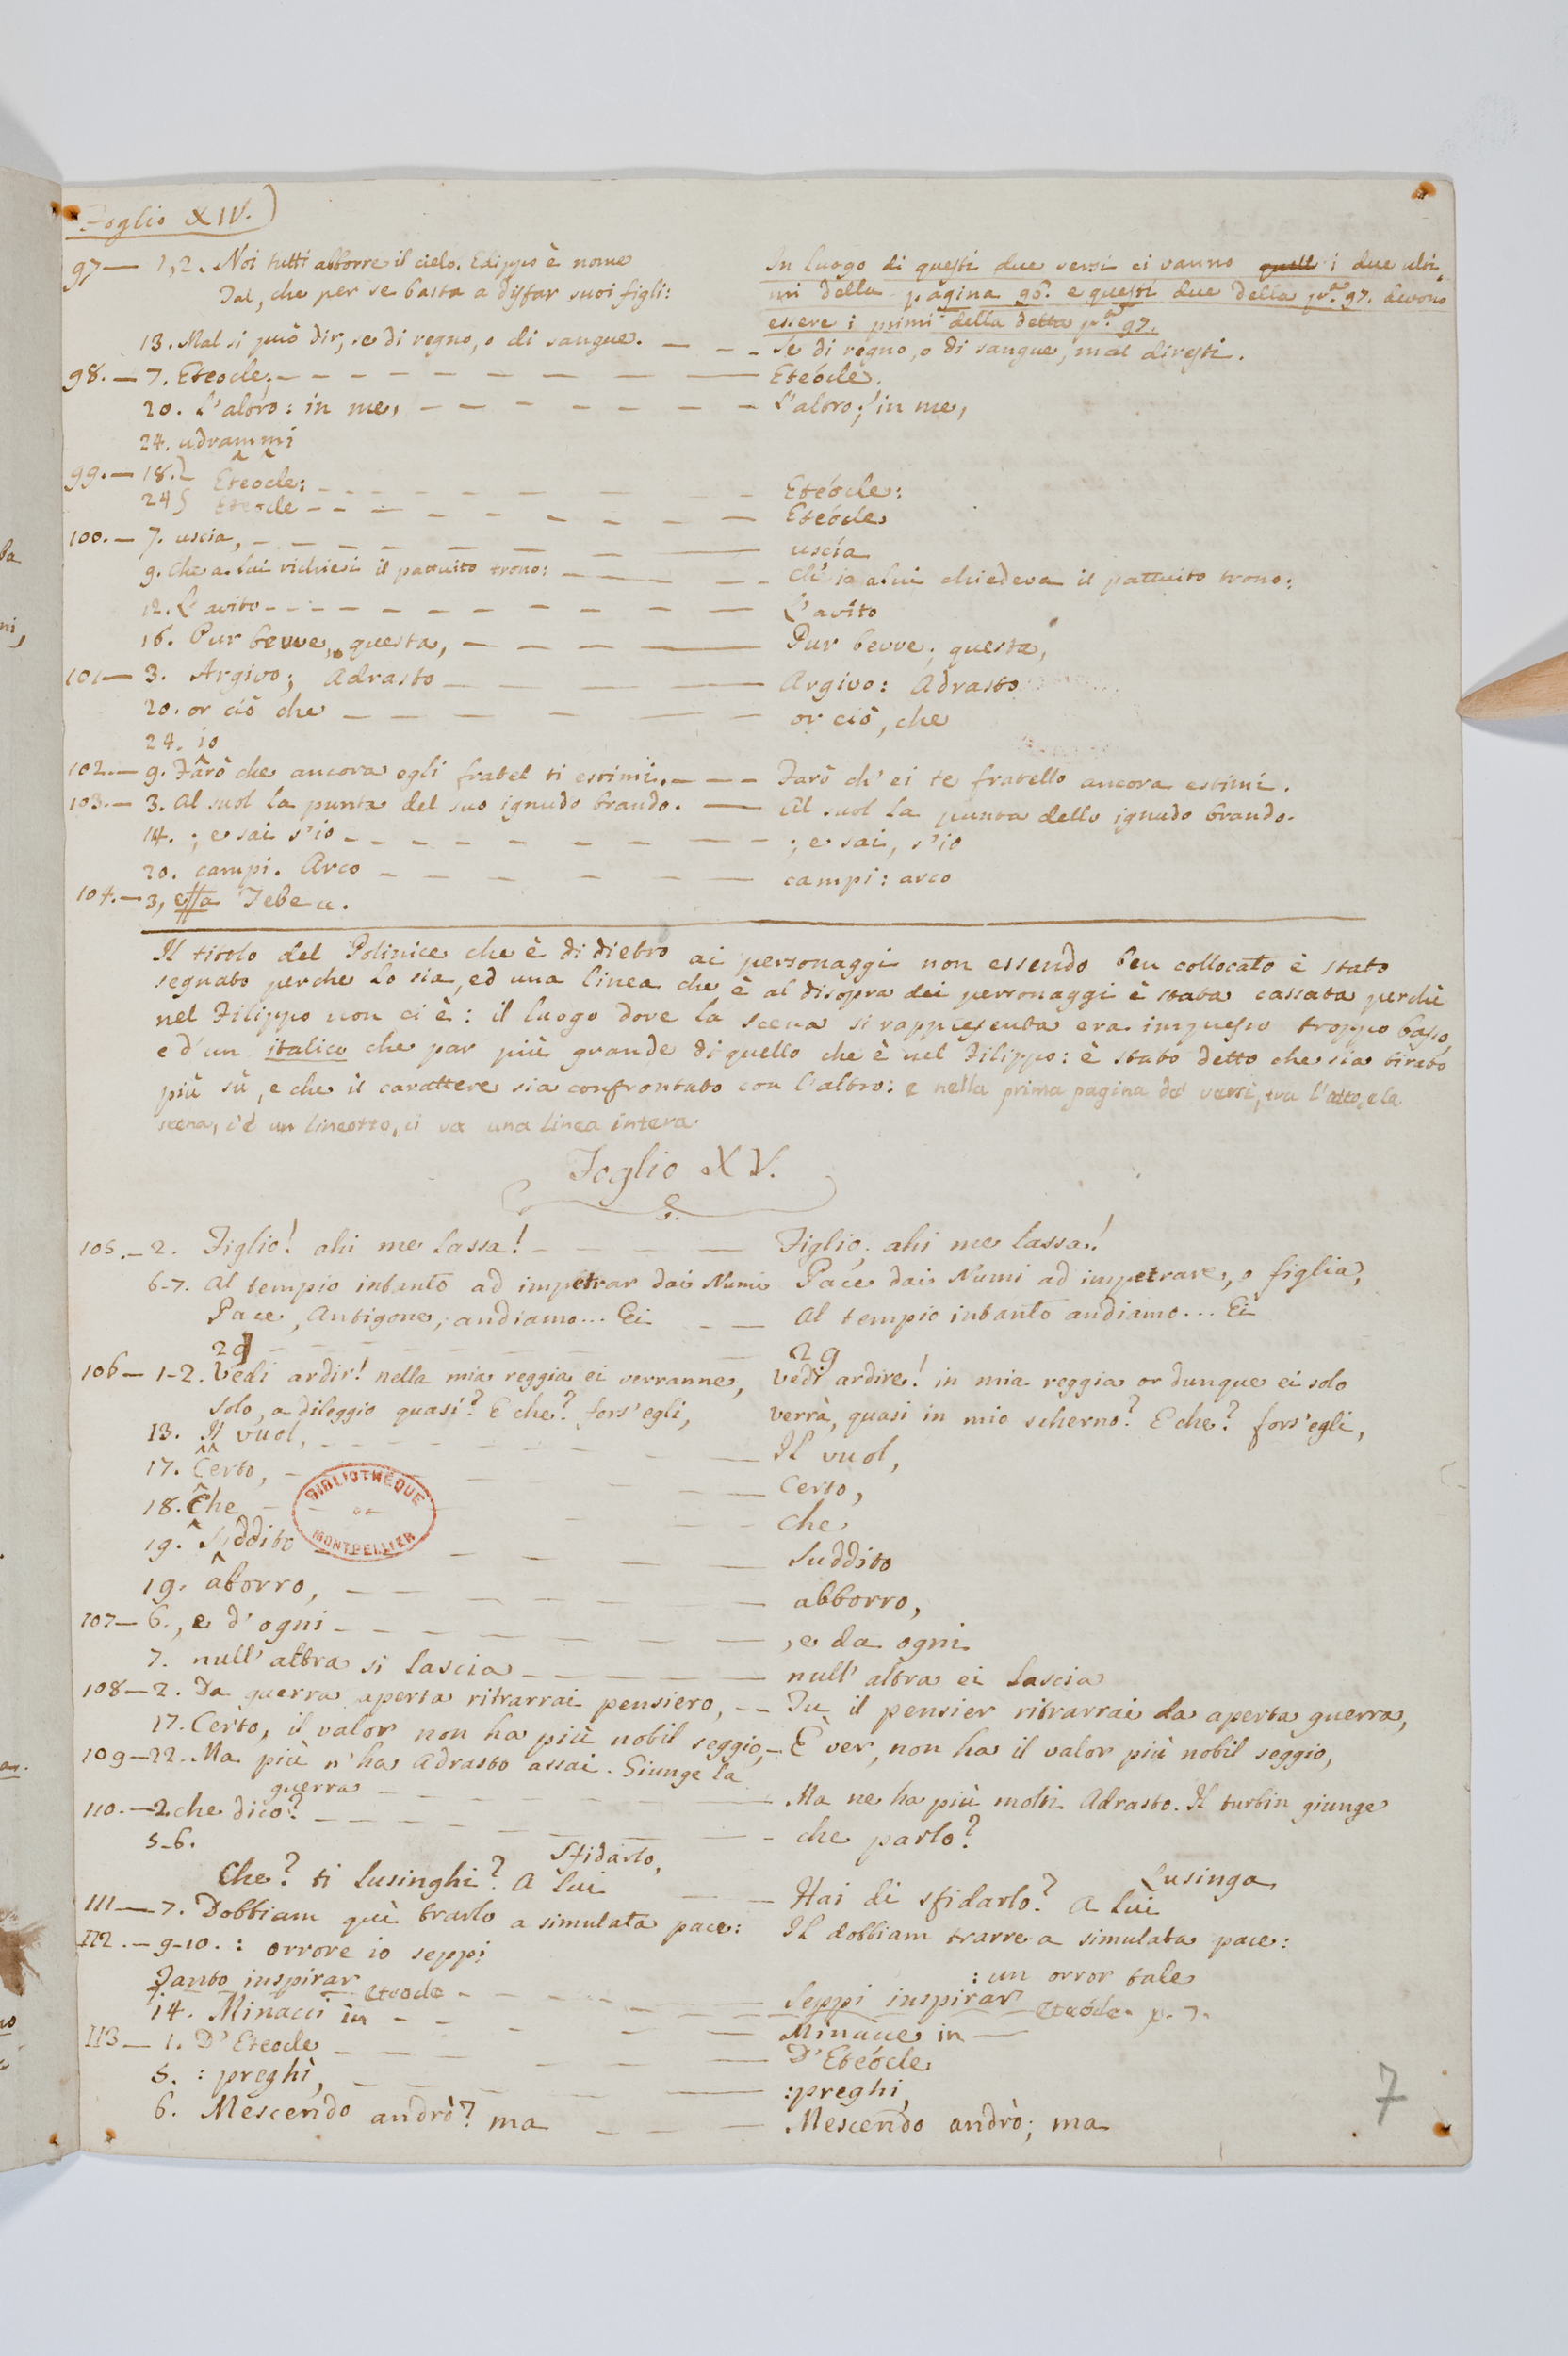 Foglio XIV.
97— 1,2. Noi tutti abborre il cielo. Edippo è nome
Tal, che per se basta a disfar suoi figli:
In luogo di questi due versi ci vanno quelli i due ulti-
mi della pagina 96. e questi due della pa. 97. devono
essere i primi della detta pa. 97.
13. Mal si può dir, se di regno, o di sangue. — — — Se di regno, o di sangue, mal diresti.
98.— 7. Eteocle, — — — Eteócle,
20. L'altro: in me, — — — L'altro; in me,
24. udrammi
99.— 18. Eteocle: — — — Eteócle:
24 Eteocle — — — Eteócle
100.— 7. uscia, — — — uscía
9. Che a lui richiesi il pattuito trono: — — — Ch'io a lui chiedeva il pattuito trono:
12. L'avito — — — L'avíto
16. Pur bevve, questa, — — — Pur bevve; questa,
101— 3. Argivo; Adrasto — — — Argivo: Adrasto
20. or ciò che — — — or ciò, che
24. io
102.— 9. Farò che ancora egli fratel ti estimi. — — — Farò ch'ei te fratello ancora estimi.
103.— 3. Al suol la punta del suo ignudo brando. — Al suol la punta dello ignudo brando.
14. ; e sai s'io — — — ; e sai, s'io
20. campi. Arco — — — campi: arco
104.— 3, essa Tebe a.
Il titolo del Polinice che è di dietro ai personaggi non essendo ben collocato è stato
segnato perche lo sia, ed una linea che è al disopra dei personaggi è stata cassata perchè
nel Filippo non ci è: il luogo dove la scena si rappresenta era impresso troppo basso,
e d'un italico che par più grande di quello che è nel Filippo: è stato detto che sia tirato
più sù, e che il carattere sia confrontato con l'altro: e nella prima pagina de' versi, tra l'atto, e la
scena, c'è un lineotto, ci va una linea intera.
Foglio XV.
105.— 2. Figlio! ahi me lassa! — — — Figlio. ahi me lassa!
6-7. Al tempio intanto ad impetrar dai Numi Pace dai Numi ad impetrare, o figlia,
Pace, Antigone, andiamo... Ei — — Al tempio intanto andiamo... Ei
29 — — — 29
106— 1-2. Vedi ardir! nella mia reggia ei verranne, Vedi ardire! in mia reggia or dunque ei solo
solo, a dileggio quasi? E che? fors'egli, verrà, quasi in mio scherno? E che? fors'egli,
13. Il vuol, — — — Il vuol,
17. Certo, — — — Certo,
18. Che — — — che
19. Suddito — — — Suddito
19. aborro, — — — abborro,
107— 6. , e d'ogni — — — , e da ogni
7. null'altra si lascia — — — null'altra ei lascia
108— 2. Da guerra aperta ritrarrai pensiero, — — Tu il pensier ritrarrai da aperta guerra,
17. Certo, il valor non ha più nobil seggio, — È ver, non ha il valor più nobil seggio,
109— 22. Ma più n'ha Adrasto assai. Giunge la
guerra — — — Ma ne ha più molti Adrasto. Il turbin giunge
110.— 2. che dico? — — — che parlo?
5-6. Sfidarlo, Lusinga
Che? ti lusinghi? A lui — — Hai di sfidarlo? A lui
111— 7. Dobbiam quì trarlo a simulata pace: Il dobbiam trarre a simulata pace:
112.— 9-10. : orrore io seppi : un orror tale
Tanto inspirar — — — Seppi inspirar
Eteocle Eteócle. p. 7.
14. Minacci in — — — Minacce in —
113— 1. D'Eteocle — — — D'Eteócle
5. : preghì, — — — : preghi,
6. Mescendo andrò? ma — — — Mescendo andrò; ma
BIBLIOTHEQUE
DE
MONTPELLIER
7